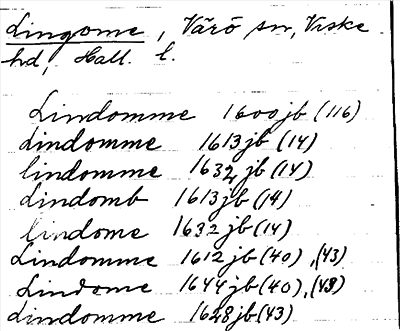 Lingome, Värö sn, Viske
hd, Hall. l.
Lindomme 1600 jb (116)
Lindomme 1613 jb (14)
lindomme 1632 jb (14)
Lindomb 1613 jb (14)
lindome 1632 jb (14)
Lindomme 1612 jb (40), (43)
Lindome 1644 jb (40), (43)
Lindomme 1628 jb (43)